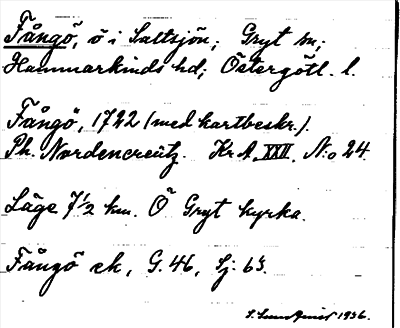 Fångö, ö i Saltsjön; Gryt sn;
Hammarkinds hd; Östergötl. l.
Fångö, 1722 (med kartbeskr.).
Ph. Nordencreütz. KrA. XXII. N:o 24.
Läge 7½ km. Ö Gryt kyrka.
Fångö ek, G. 46, Sj. 63.
1936.